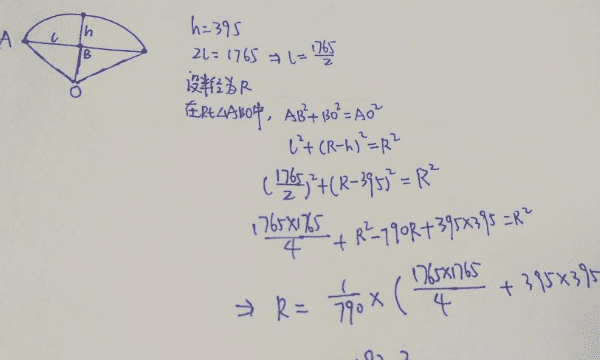 A
l
h
B
O
h=395
2l=1765 ⇒ l=1765/2
设半径为R
在Rt△ABO中, AB²+BO²=AO²
l²+(R-h)²=R²
(1765/2)²+(R-395)²=R²
1765×1765/4 + R²-790R+395×395=R²
⇒ R = 1/790 × (1765×1765/4 + 395×395